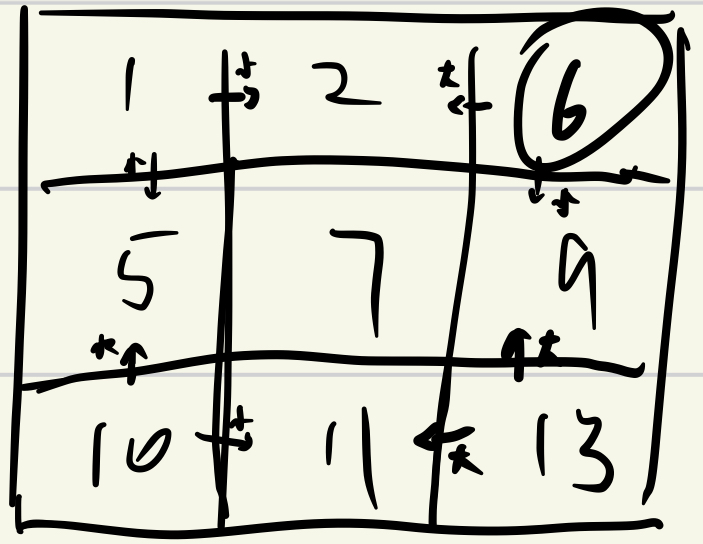 1 → * 2 * ← 6
* ↓ ↓ *
5 7 9
* ↑ ↑ *
10 → * 11 ← * 13